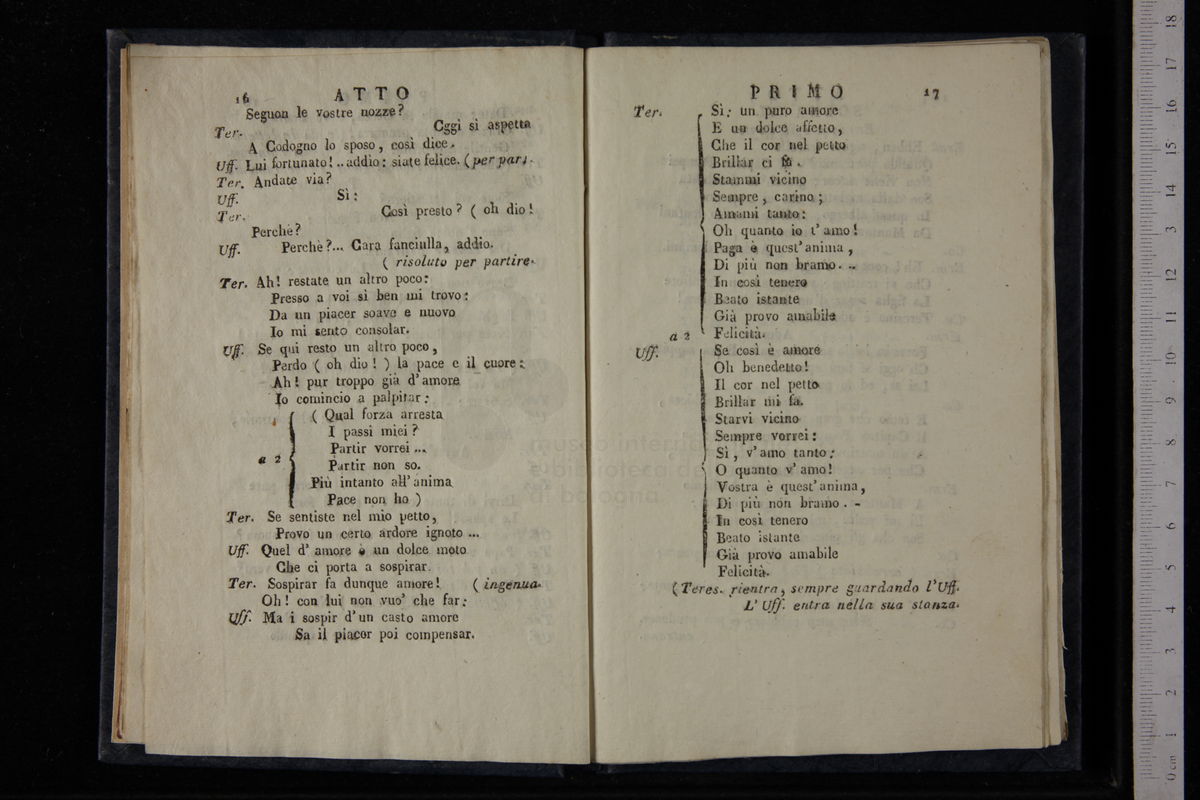 16 ATTO
Seguon le vostre nozze?
Ter. Oggi si aspetta
A Codogno lo sposo, così dice.
Uff. Lui fortunato!.. addio: siate felice. (per part.
Ter. Andate via?
Uff. Sì:
Ter. Così presto? ( oh dio!
Perchè?
Uff. Perchè?... Cara fanciulla, addio.
( risoluto per partire.
Ter. Ah! restate un altro poco:
Presso a voi sì ben mi trovo:
Da un piacer soave e nuovo
Io mi sento consolar.
Uff. Se qui resto un altro poco,
Perdo ( oh dio! ) la pace e il cuore:
Ah! pur troppo già d'amore
Io comincio a palpitar:
( Qual forza arresta
I passi miei?
Partir vorrei...
a 2 Partir non so.
Più intanto all'anima
Pace non ho )
Ter. Se sentiste nel mio petto,
Provo un certo ardore ignoto ...
Uff. Quel d'amore è un dolce moto
Che ci porta a sospirar.
Ter. Sospirar fa dunque amore! ( ingenua.
Oh! con lui non vuo' che far:
Uff. Ma i sospir d'un casto amore
Sa il piacer poi compensar.
PRIMO 17
Ter. Sì: un puro amore
E un dolce affetto,
Che il cor nel petto
Brillar ci fa.
Stammi vicino
Sempre, carino;
Amami tanto:
Oh quanto io t'amo!
Paga è quest'anima,
Di più non bramo. -
In così tenero
Beato istante
Già provo amabile
a 2 Felicità.
Uff. Se così è amore
Oh benedetto!
Il cor nel petto
Brillar mi fa.
Starvi vicino
Sempre vorrei:
Sì, v'amo tanto:
O quanto v'amo!
Vostra è quest'anima,
Di più non bramo. -
In così tenero
Beato istante
Già provo amabile
Felicità.
(Teres. rientra, sempre guardando l'Uff.
L'Uff. entra nella sua stanza.